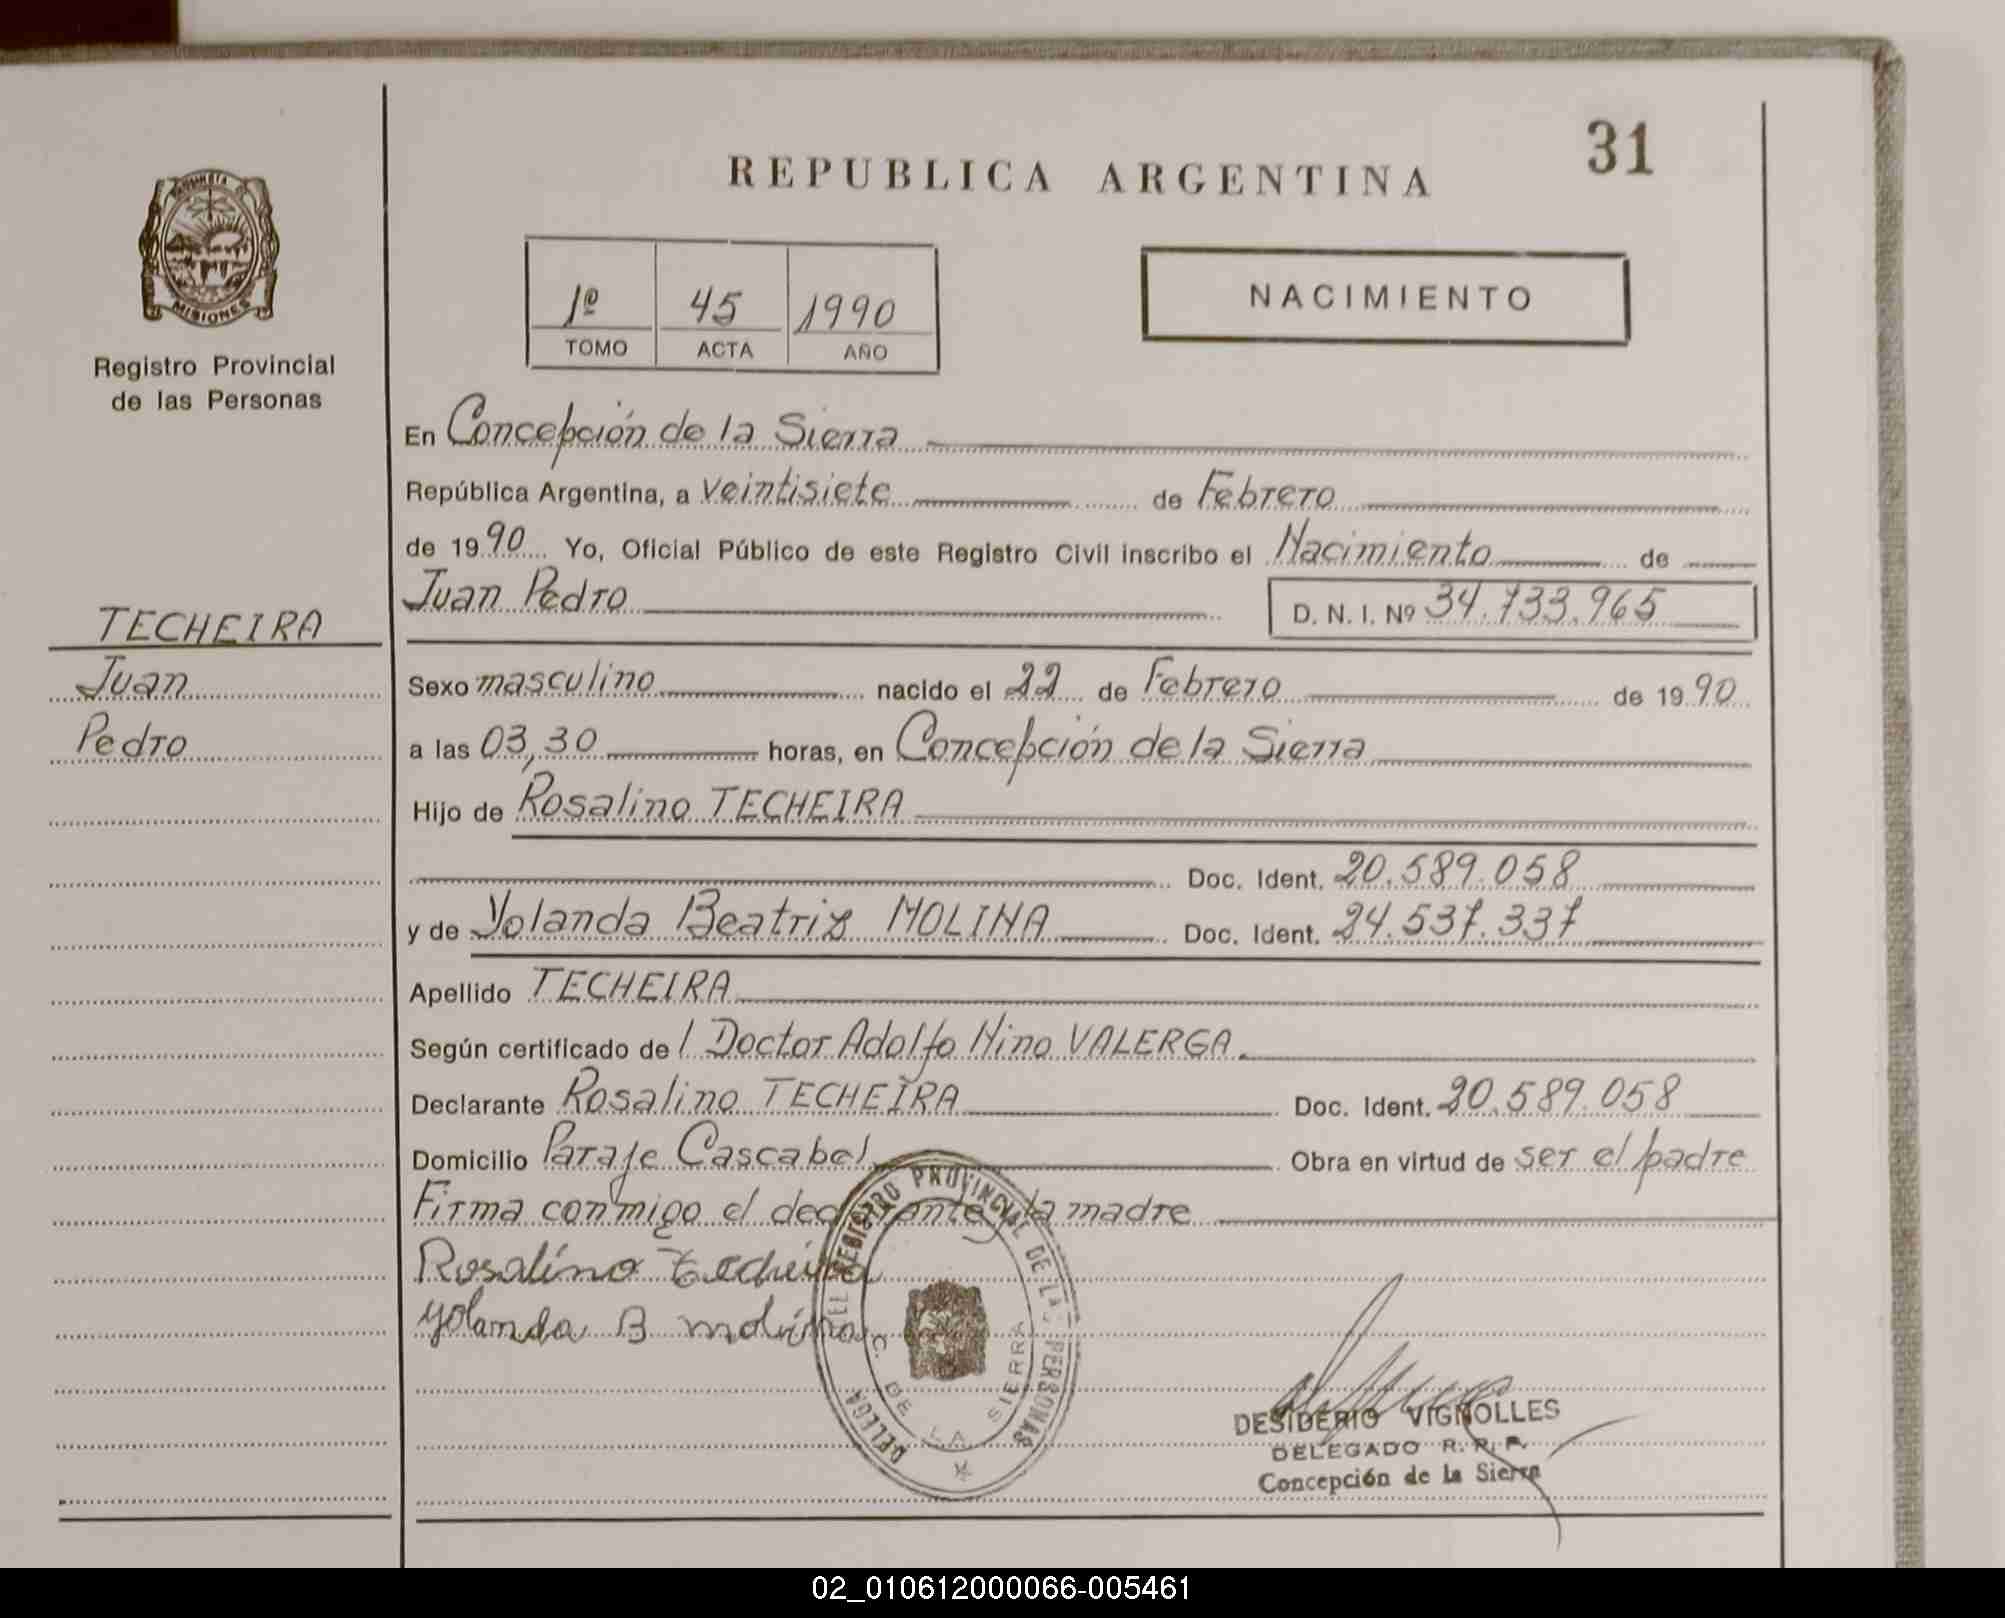 31
REPUBLICA ARGENTINA
PROVINCIA DE
MISIONES
Registro Provincial
de las Personas
1º 45 1990
TOMO ACTA AÑO
NACIMIENTO
En Concepción de la Sierra
República Argentina, a veintisiete de Febrero
de 1990 Yo, Oficial Público de este Registro Civil inscribo el Nacimiento de
Juan Pedro D. N. I. Nº 34.733.965
TECHEIRA
Juan
Pedro
Sexo masculino nacido el 22 de Febrero de 1990
a las 03,30 horas, en Concepción de la Sierra
Hijo de Rosalino TECHEIRA
Doc. Ident. 20.589.058
y de Yolanda Beatriz MOLINA Doc. Ident. 24.537.337
Apellido TECHEIRA
Según certificado de l Doctor Adolfo Nino VALERGA.
Declarante Rosalino TECHEIRA Doc. Ident. 20.589.058
Domicilio Paraje Cascabel Obra en virtud de ser el padre
Firma conmigo el declarante y la madre
Rosalino Techeira
Yolanda B molina
DELEGA DEL REGISTRO PROVINCIAL DE LAS PERSONAS
C. DE LA SIERRA
DESIDERIO VIGNOLLES
DELEGADO R. P. P.
Concepción de la Sierra
02_010612000066-005461